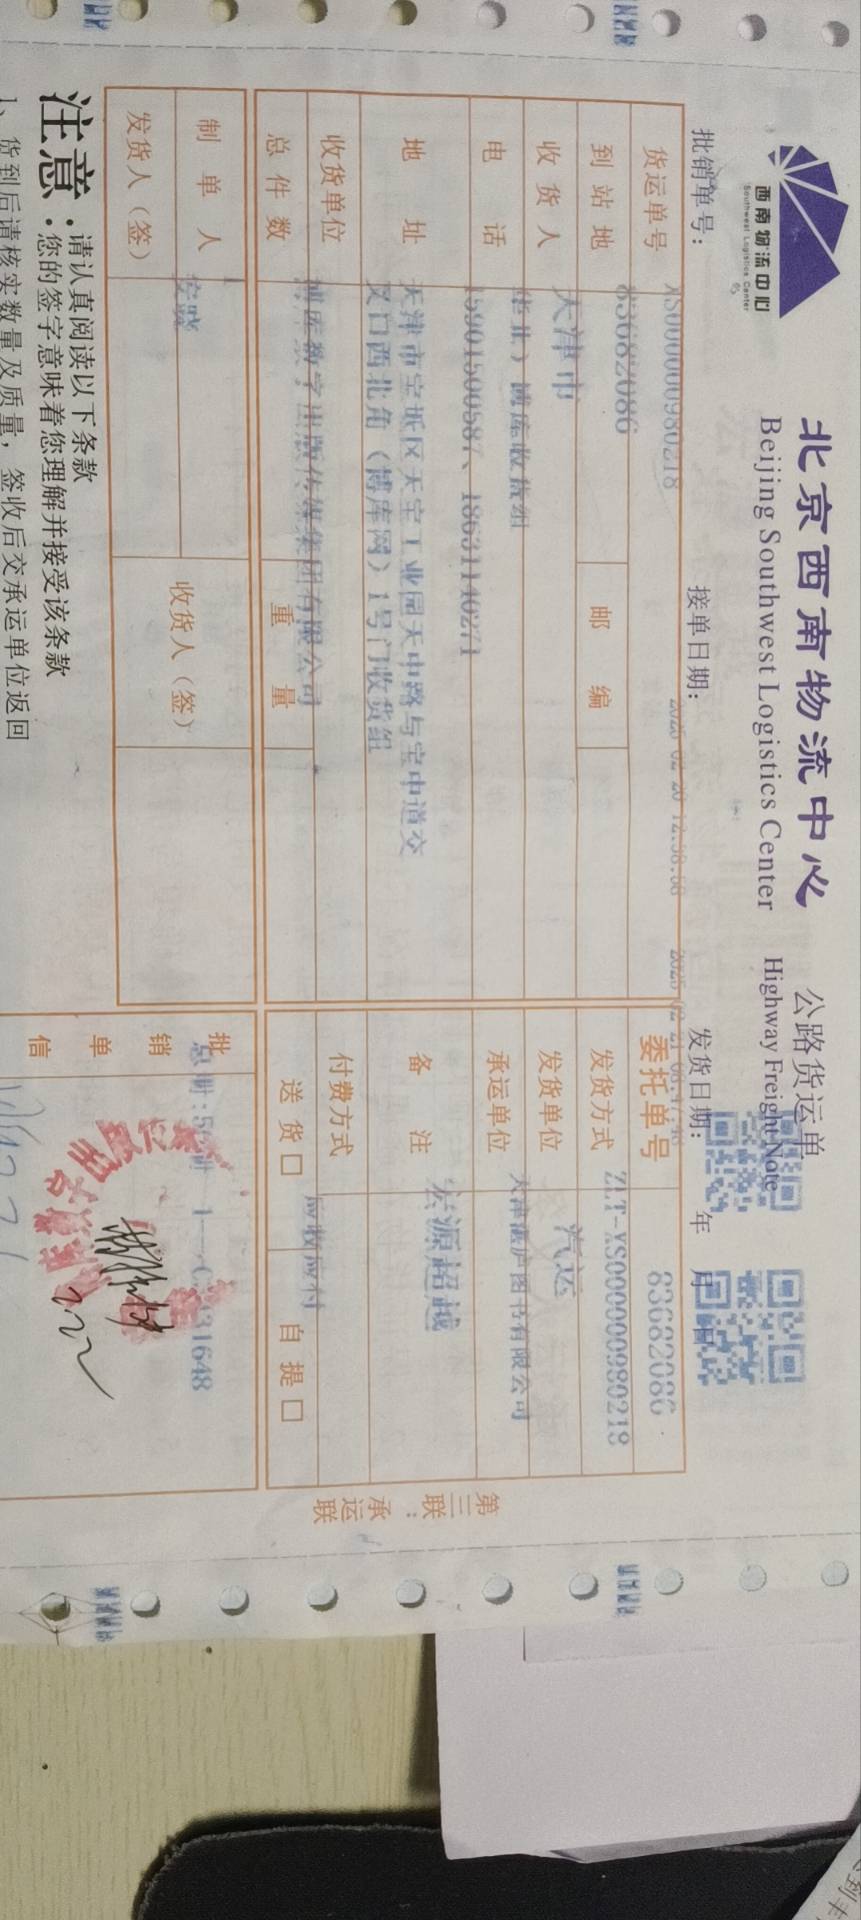 西南物流中心
Southwest Logistics Center
北京西南物流中心 公路货运单
Beijing Southwest Logistics Center Highway Freight Note
批销单号： 接单日期： 发货日期： 年 月 日
货运单号 XS0000000980218
委托单号 83682086
83682086
到站地 天津市 邮编
发货方式 ZLT-XS0000000980218
收货人 华北）博库收货组
发货单位 汽运
电话 15901500587、18631140271
承运单位 天津湛庐图书有限公司
地址 天津市宝坻区天宝工业园天中路与宝中道交
叉口西北角（博库网）1号门收货组
备注 宏源超越
收货单位 博库数字出版传媒集团有限公司
付费方式 应收应付
总件数 重量 送货□ 自提□
制单人 安晓 收货人（签）
发货人（签）
批销单信
第三联：承运联
注意：请认真阅读以下条款
您的签字意味着您理解并接受该条款
1、货到后请核实数量及质量，签收后交承运单位返回